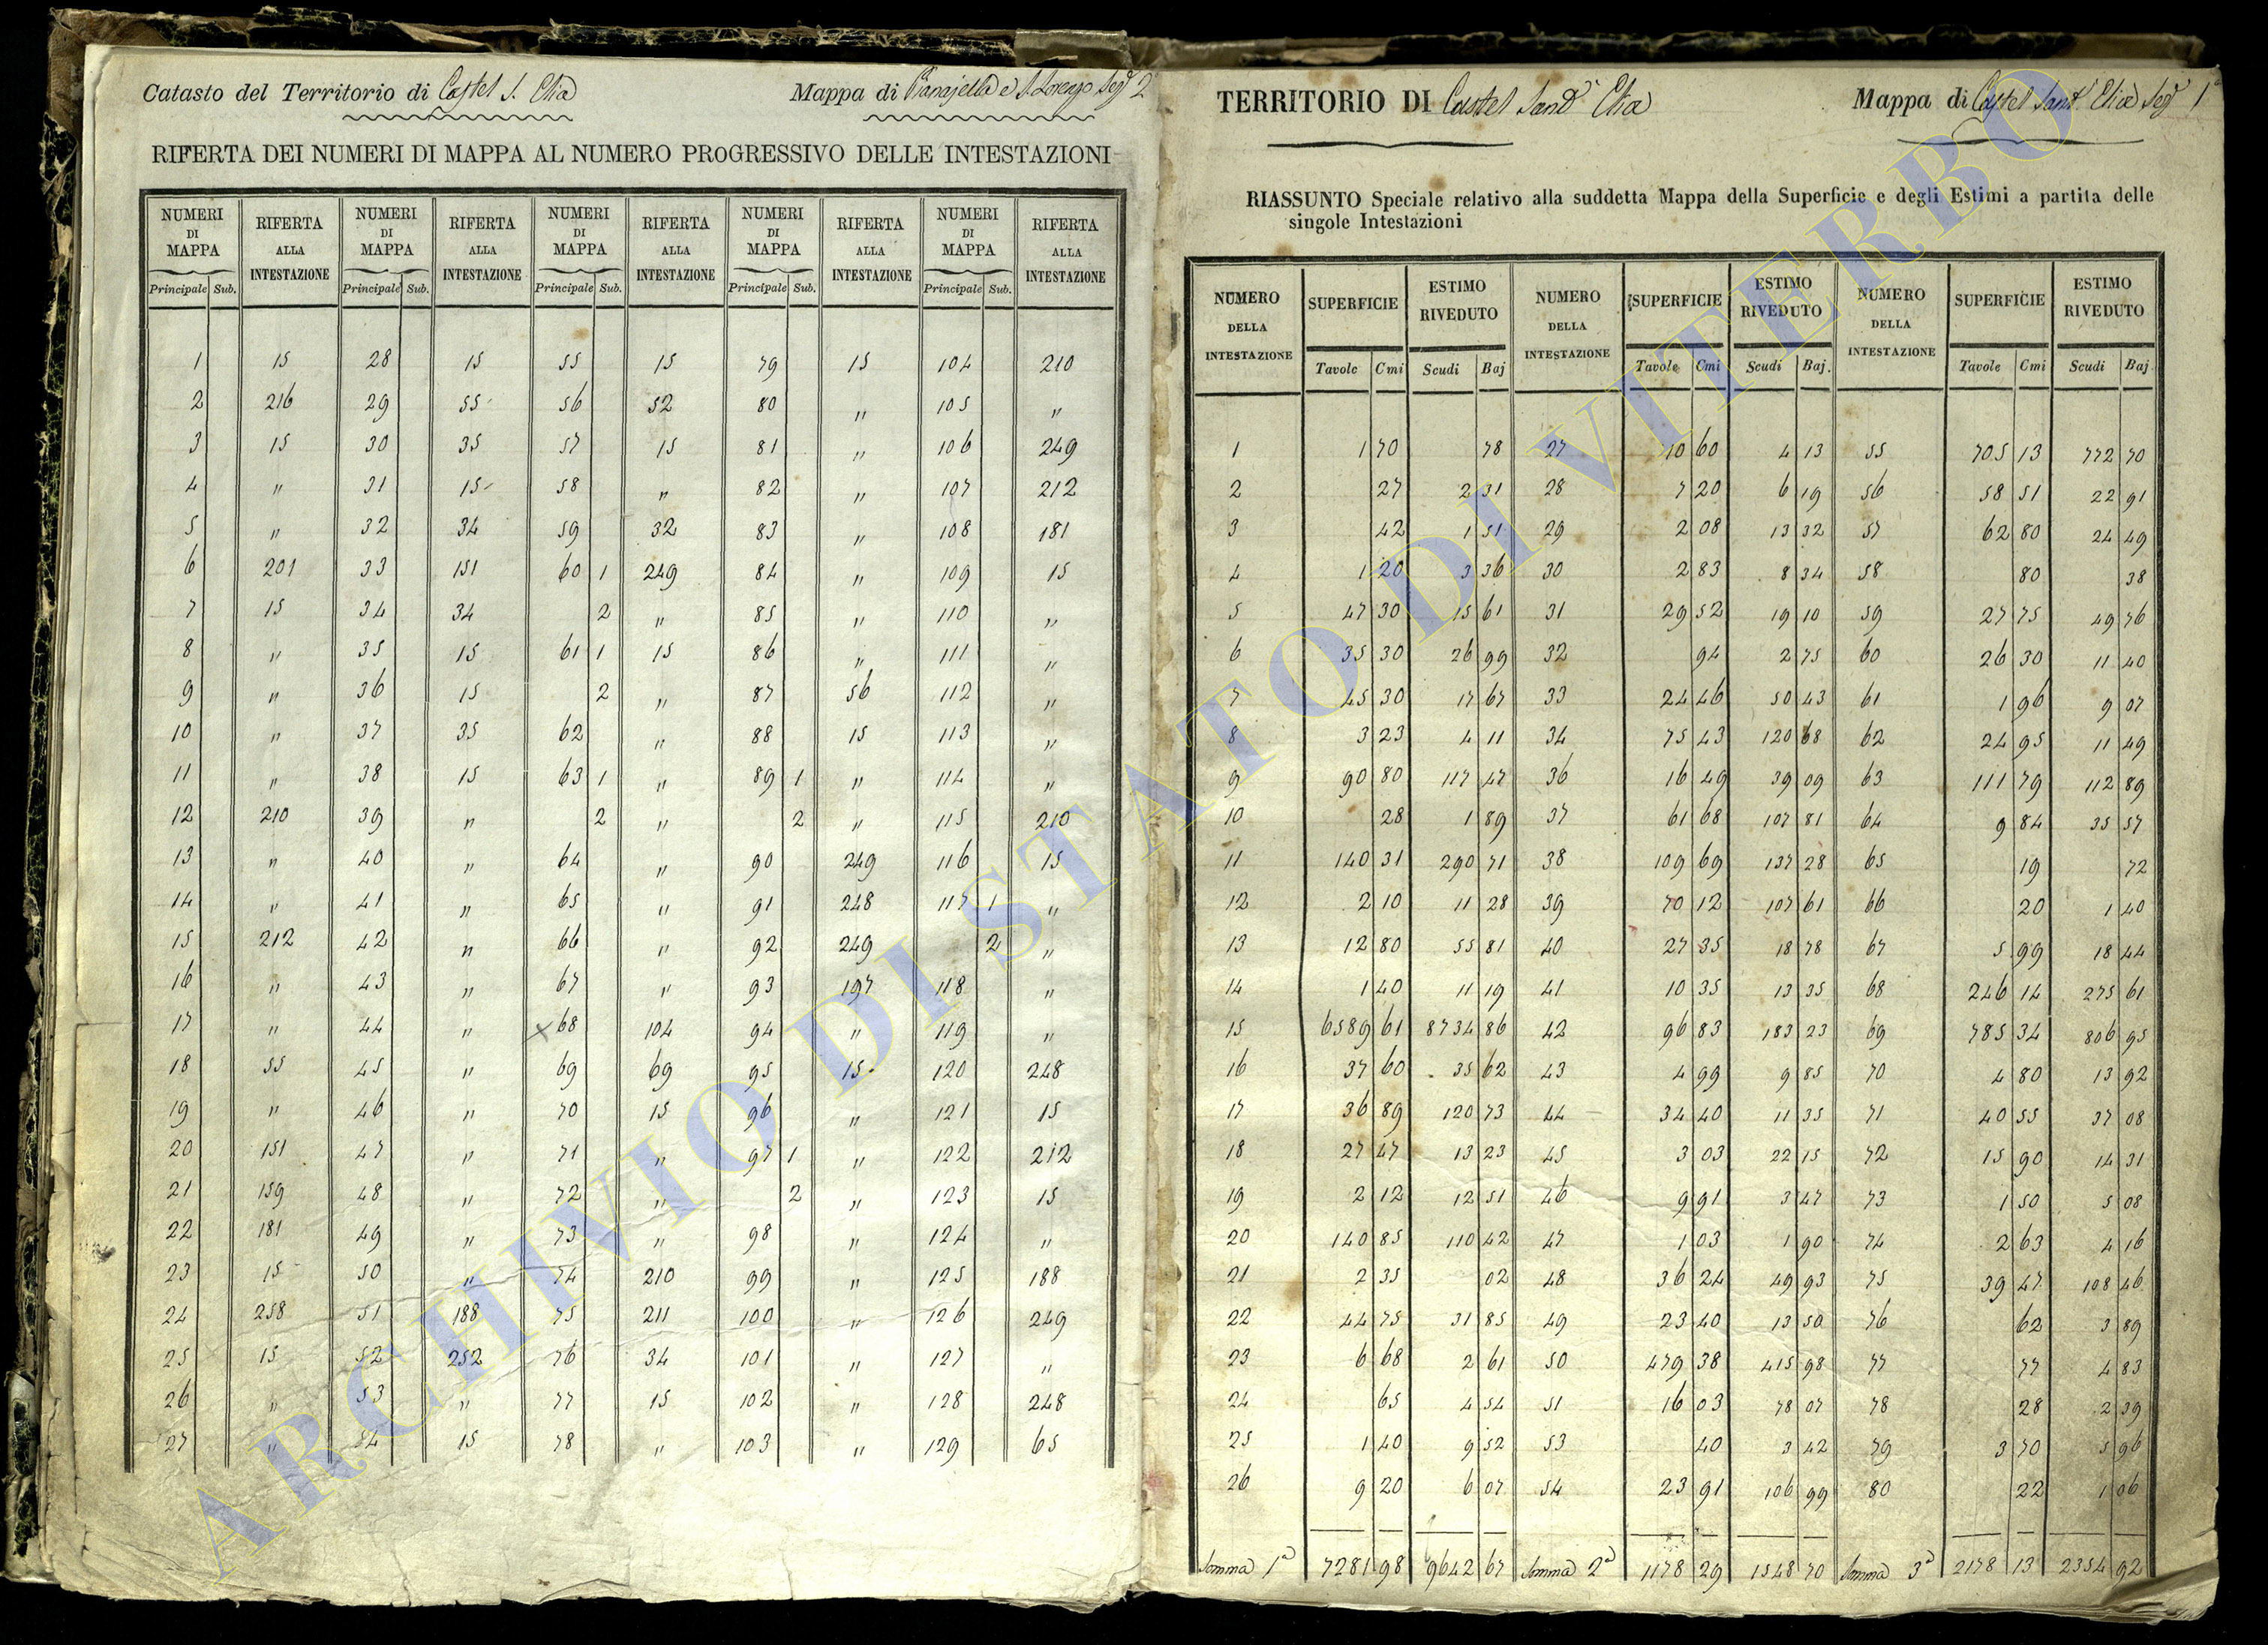 Catasto del Territorio di Castel S. Elia Mappa di Pianajella e S. Lorenzo Sez. 2ª
RIFERTA DEI NUMERI DI MAPPA AL NUMERO PROGRESSIVO DELLE INTESTAZIONI
NUMERI DI MAPPA RIFERTA ALLA INTESTAZIONE NUMERI DI MAPPA RIFERTA ALLA INTESTAZIONE NUMERI DI MAPPA RIFERTA ALLA INTESTAZIONE NUMERI DI MAPPA RIFERTA ALLA INTESTAZIONE NUMERI DI MAPPA RIFERTA ALLA INTESTAZIONE
Principale Sub. Principale Sub. Principale Sub. Principale Sub. Principale Sub.
1 15 28 15 55 15 79 15 104 210
2 216 29 55 56 52 80 " 105 "
3 15 30 35 57 15 81 " 106 249
4 " 31 15 58 " 82 " 107 212
5 " 32 34 59 32 83 " 108 181
6 201 33 151 60 1 249 84 " 109 15
7 15 34 34 2 " 85 " 110 "
8 " 35 15 61 1 15 86 " 111 "
9 " 36 15 2 " 87 56 112 "
10 " 37 35 62 " 88 15 113 "
11 " 38 15 63 1 " 89 1 " 114 "
12 210 39 " 2 " 2 " 115 210
13 " 40 " 64 " 90 249 116 15
14 " 41 " 65 " 91 248 117 1 "
15 212 42 " 66 " 92 249 2 "
16 " 43 " 67 " 93 197 118 "
17 " 44 " x 68 104 94 " 119 "
18 55 45 " 69 69 95 15 120 248
19 " 46 " 70 15 96 " 121 15
20 151 47 " 71 " 97 1 " 122 212
21 159 48 " 72 " 2 " 123 15
22 181 49 " 73 " 98 " 124 "
23 15 50 " 74 210 99 " 125 188
24 258 51 188 75 211 100 " 126 249
25 15 52 252 76 34 101 " 127 "
26 " 53 " 77 15 102 " 128 248
27 " 54 15 78 " 103 " 129 65
TERRITORIO DI Castel Sant' Elia Mappa di Castel Sant' Elia Sez. 1ª
RIASSUNTO Speciale relativo alla suddetta Mappa della Superficie e degli Estimi a partita delle
singole Intestazioni
NUMERO DELLA INTESTAZIONE SUPERFICIE ESTIMO RIVEDUTO NUMERO DELLA INTESTAZIONE SUPERFICIE ESTIMO RIVEDUTO NUMERO DELLA INTESTAZIONE SUPERFICIE ESTIMO RIVEDUTO
Tavole Cmi Scudi Baj Tavole Cmi Scudi Baj. Tavole Cmi Scudi Baj.
1 1 70 78 27 10 60 4 13 55 705 13 772 70
2 27 2 31 28 7 20 6 19 56 58 51 22 91
3 42 1 51 29 2 08 13 32 57 62 80 24 49
4 1 20 3 36 30 2 83 8 34 58 80 38
5 47 30 15 61 31 29 52 19 10 59 27 75 49 76
6 35 30 26 99 32 94 2 75 60 26 30 11 40
7 45 30 17 67 33 24 46 50 43 61 1 96 9 07
8 3 23 4 11 34 75 43 120 68 62 24 95 11 49
9 90 80 117 47 36 16 49 39 09 63 111 79 112 89
10 28 1 89 37 61 68 107 81 64 9 84 35 57
11 140 31 290 71 38 109 69 137 28 65 19 72
12 2 10 11 28 39 70 12 107 61 66 20 1 40
13 12 80 55 81 40 27 35 18 78 67 5 99 18 44
14 1 40 11 19 41 10 35 13 35 68 246 14 275 61
15 6589 61 8734 86 42 96 83 183 23 69 785 34 806 95
16 37 60 35 62 43 4 99 9 85 70 4 80 13 92
17 36 89 120 73 44 34 40 11 35 71 40 55 37 08
18 27 47 13 23 45 3 03 22 15 72 15 90 14 31
19 2 12 12 51 46 9 91 3 47 73 1 50 5 08
20 140 85 110 42 47 1 03 1 90 74 2 63 4 16
21 2 35 02 48 36 24 49 93 75 39 47 108 46
22 44 75 31 85 49 23 40 13 50 76 62 3 89
23 6 68 2 61 50 479 38 415 98 77 77 4 83
24 65 4 54 51 16 03 78 07 78 28 2 39
25 1 40 9 52 53 40 3 42 79 3 70 5 96
26 9 20 6 07 54 23 91 106 99 80 22 1 06
Somma 1ª 7281 98 9642 67 Somma 2ª 1178 29 1548 70 Somma 3ª 2178 13 2354 92
ARCHIVIO DI STATO DI VITERBO